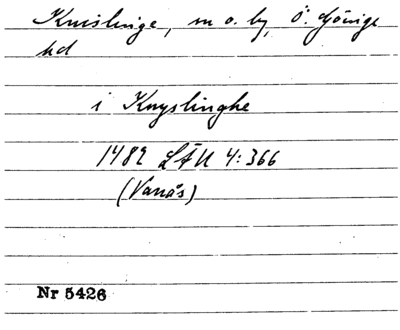 Knislinge, sn o. by, Ö. Göinge
hd
i Knyslinghe
1489 LÄU 4:366
(Vanås)
Nr 5426